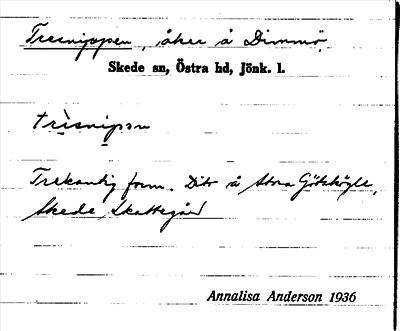 Tresnippen, åker å Dimmö,
Skede sn, Östra hd, Jönk. l.
trìsnipən
Trekantig form. Dito å Stora Götskögle,
Skede Skattegård
Annalisa Anderson 1936